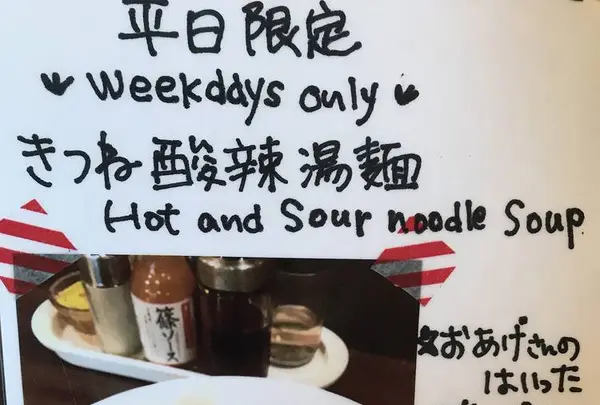 平日限定
Weekdays only
きつね酸辣湯麺
Hot and Sour noodle Soup
篠ソース
☆おあげさんの
はいった